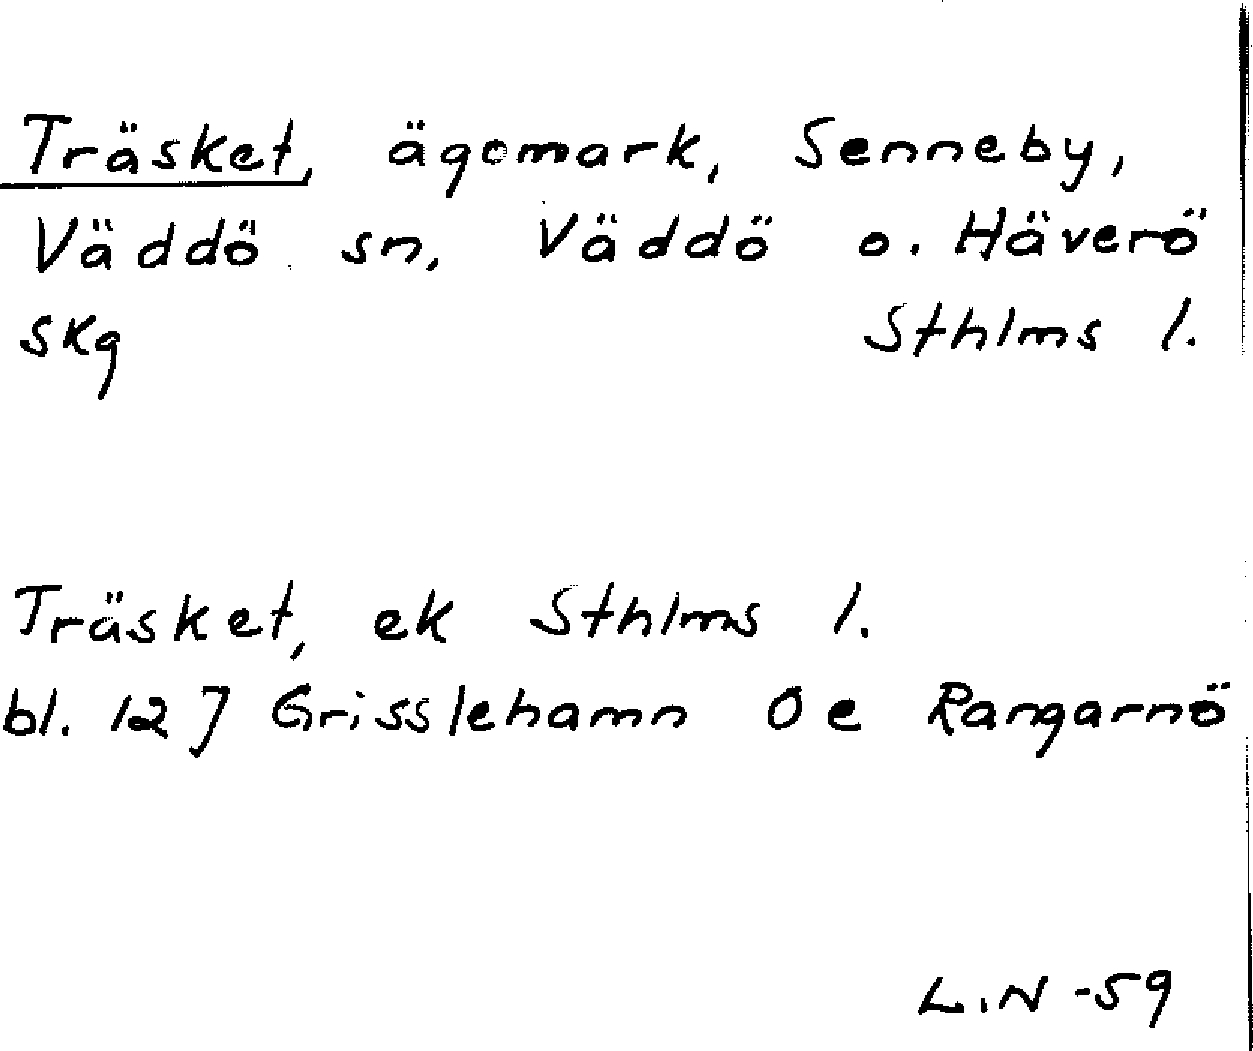 Träsket, ägomark, Senneby,
Väddö sn, Väddö o. Häverö
skg Sthlms l.
Träsket, ek Sthlms l.
bl. 12 J Grisslehamn O e Rangarnö
L.N -59